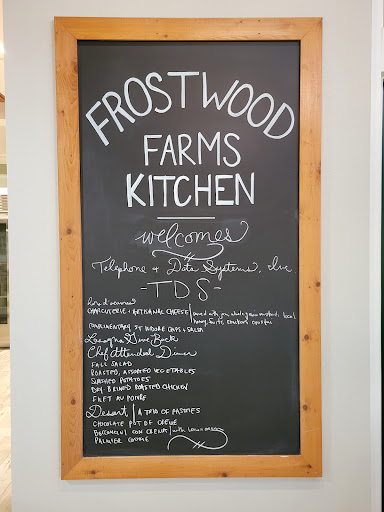 FROSTWOOD
FARMS
KITCHEN
welcomes
Telephone & Data Systems, Inc
-TDS-
hors d'oeuvres
CHARCUTERIE & ARTISANAL CHEESE / served with whole grain mustard, local
honey, crackers
COMPLIMENTARY CHIPS & SALSA
Lasagna Give Back
Chef Attended Dinner
FALL SALAD
ROASTED, ASSORTED VEGETABLES
SMASHED POTATOES
DRY BRINED ROASTED CHICKEN
FILET AU POIVRE
Dessert / A TRIO OF PASTRIES
CHOCOLATE POT DE CREME
CON CREMA / with
PALMIER COOKIE